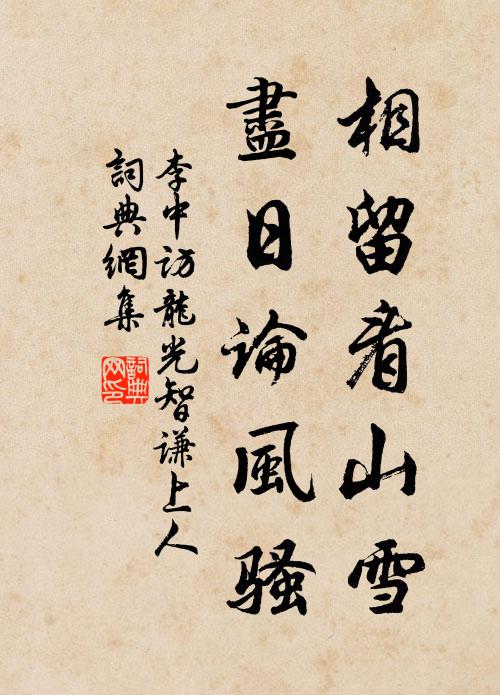 相留看山雪
盡日論風騷
李中訪龍光智謙上人
詞典網集
詞典网印